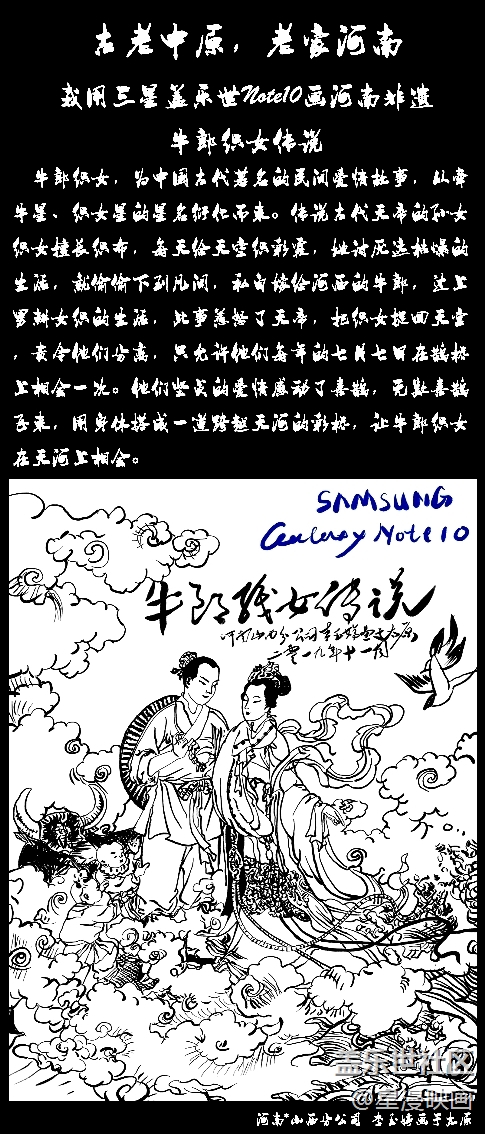 古老中原，老家河南
我用三星盖乐世Note10画河南非遗
牛郎织女传说
牛郎织女，为中国古代著名的民间爱情故事，从牵
牛星、织女星的星名衍化而来。传说古代天帝的孙女
织女擅长织布，每天给天空织彩霞，她讨厌这枯燥的
生活，就偷偷下到凡间，私自嫁给河西的牛郎，过上
男耕女织的生活，此事惹怒了天帝，把织女捉回天宫
，责令他们分离，只允许他们每年的七月七日在鹊桥
上相会一次。他们坚贞的爱情感动了喜鹊，无数喜鹊
飞来，用身体搭成一道跨越天河的彩桥，让牛郎织女
在天河上相会。
SAMSUNG
Note10
牛郎织女传说
二零一九年十一月
盖乐世社区
@星漫映画
河南*山西分公司 李玉婷画于太原